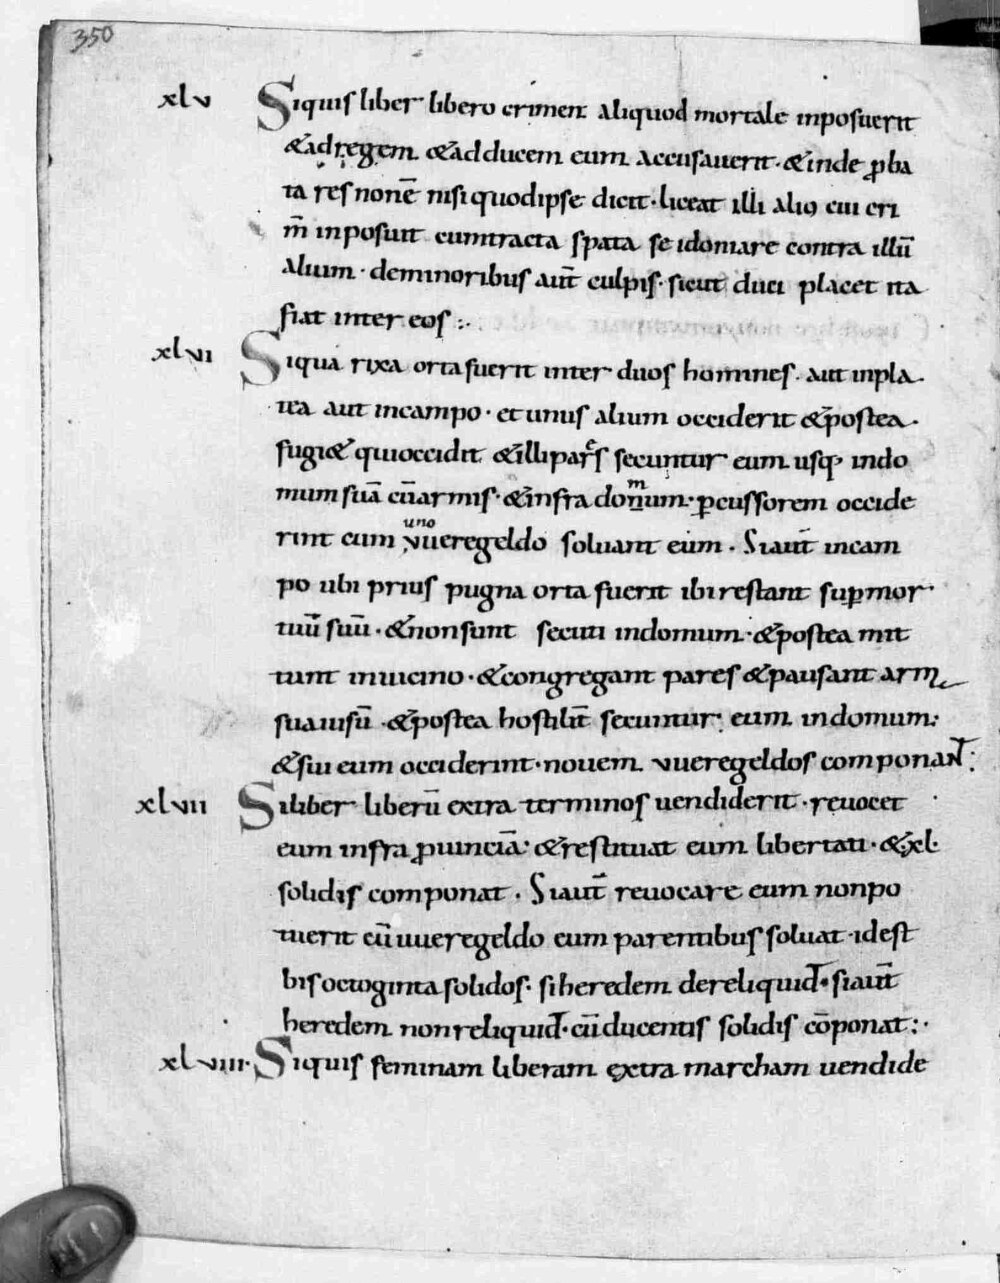 350
xlv Siquis liber libero crimen aliquod mortale inposuerit
&ad regem &ad ducem eum accusauerit · &inde ꝓba
ta res non ē nisi quod ipse dicit · liceat illi alio cui cri
m̄ inposuit cum tracta spata se idoniare contra illū
alium · deminoribus aut̄ culpis · sicut duci placet ita
fiat inter eos :.
xlvi Siqua rixa orta fuerit inter duos homines . aut inpla
tea aut incampo · et unus alium occiderit &postea ·
fugi& qui occidit &illi pares secuntur eum usq; indo
mum suā cū armis · &infra domum · ꝑcussorem occide
rint cum uno uueregeldo soluant eum . Siaut̄ incam
po ubi prius pugna orta fuerit ibi restant suꝑ mor
tuū suū · &non sunt secuti indomum · &postea mit
tunt inuicino · &congregant pares &pausant arma
sua iusū · &postea hostilit̄ secuntur eum indomum :
&sui eum occiderint · nouem uueregeldos componant :
xlvii Siliber liberū extra terminos uendiderit · reuocet
eum infra ꝓuinciā · &restituat eum libertati · &xl ·
solidis componat . Siaut̄ reuocare eum non po
tuerit cū uueregeldo eum parentibus soluat · idest
bis octoginta solidos · si heredem dereliquid · siaut̄
heredem non reliquid · cū ducentis solidis cōponat : ·
xlviii · Siquis feminam liberam extra marcham uendide